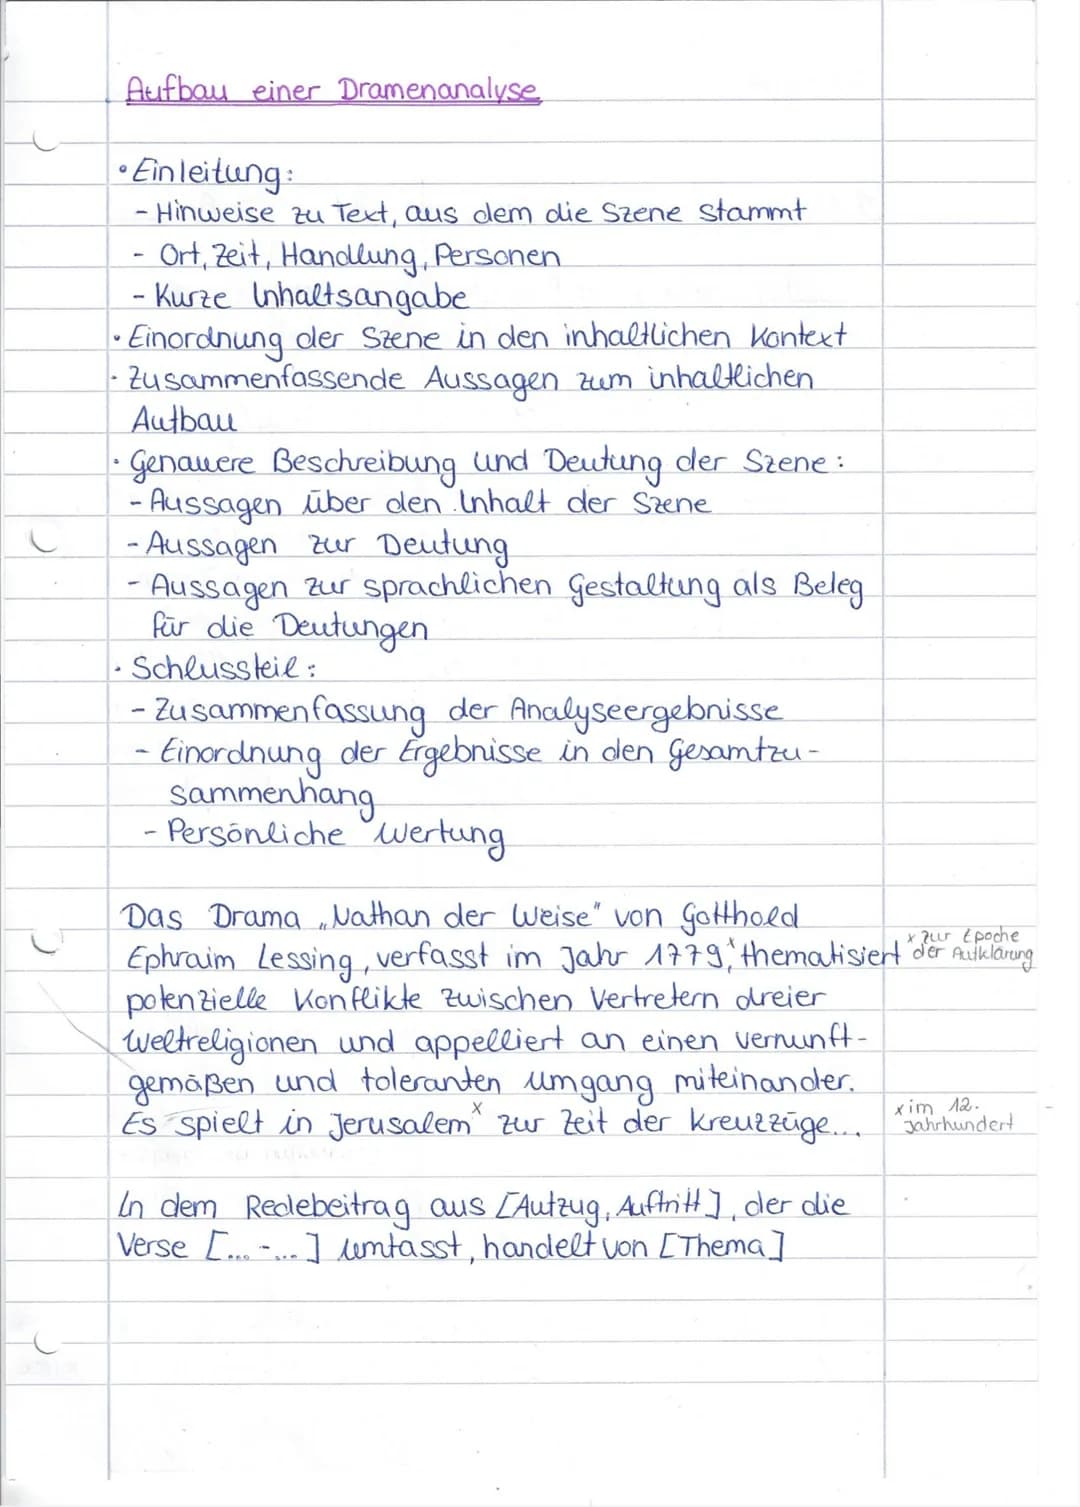 Aufbau einer Dramenanalyse
• Einleitung:
- Hinweise zu Text, aus dem die Szene stammt
- Ort, Zeit, Handlung, Personen
- Kurze Inhaltsangabe
• Einordnung der Szene in den inhaltlichen Kontext
• Zusammenfassende Aussagen zum inhaltlichen
Aufbau
• Genauere Beschreibung und Deutung der Szene:
- Aussagen über den Inhalt der Szene
- Aussagen zur Deutung
- Aussagen zur sprachlichen Gestaltung als Beleg
für die Deutungen
• Schlussteil:
- Zusammenfassung der Analyseergebnisse
- Einordnung der Ergebnisse in den Gesamtzu-
sammenhang
- Persönliche Wertung
Das Drama „Nathan der Weise" von Gotthold
Ephraim Lessing, verfasst im Jahr 1779,ˣ thematisiert
x zur Epoche
der Aufklärung
potenzielle Konflikte zwischen Vertretern dreier
Weltreligionen und appelliert an einen vernunft-
gemäßen und toleranten Umgang miteinander.
Es spielt in Jerusalemˣ zur Zeit der Kreuzzüge...
x im 12.
Jahrhundert
In dem Redebeitrag aus [Aufzug, Auftritt], der die
Verse [...-...] umfasst, handelt von [Thema]